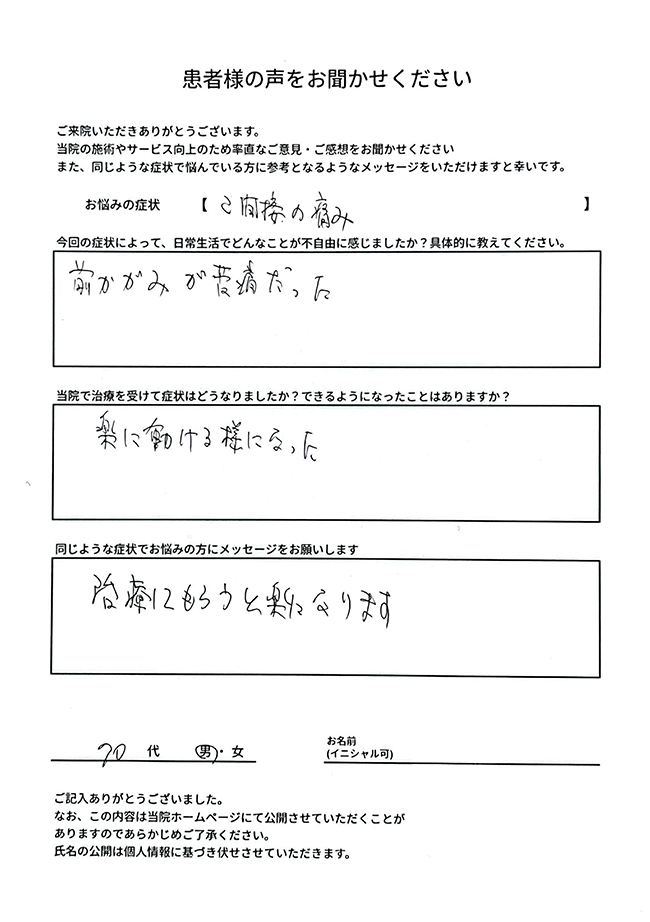 患者様の声をお聞かせください
ご来院いただきありがとうございます。
当院の施術やサービス向上のため率直なご意見・ご感想をお聞かせください
また、同じような症状で悩んでいる方に参考となるようなメッセージをいただけますと幸いです。
お悩みの症状 【 の痛み 】
今回の症状によって、日常生活でどんなことが不自由に感じましたか？具体的に教えてください。
前かがみが苦痛だった
当院で治療を受けて症状はどうなりましたか？できるようになったことはありますか？
楽に働ける様になった
同じような症状でお悩みの方にメッセージをお願いします
治療にもらうと楽になります
70 代 男・女
お名前
(イニシャル可)
ご記入ありがとうございました。
なお、この内容は当院ホームページにて公開させていただくことが
ありますのであらかじめご了承ください。
氏名の公開は個人情報に基づき伏せさせていただきます。